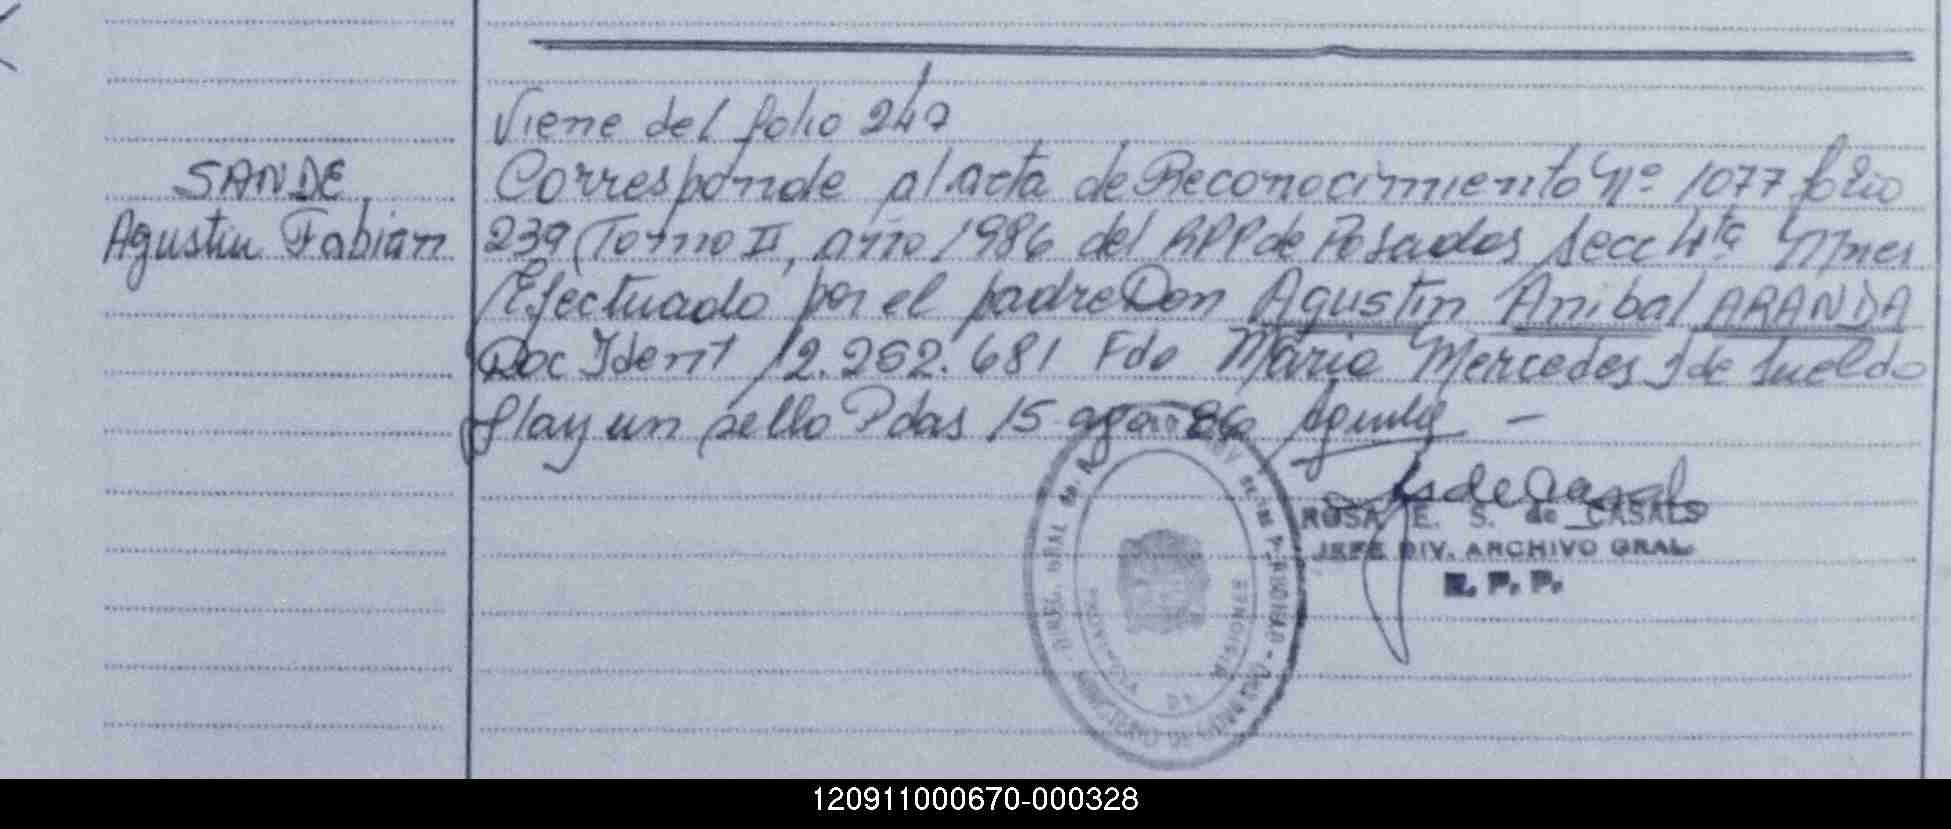 Viene del folio 247
SANDE
Agustin Fabian
Corresponde al acta de Reconocimiento Nº 1077 folio
239 Tomo II, año 1986 del RPP de Posadas Secc 4ta Mnes
Efectuado por el padre Don Agustin Anibal ARANDA
Doc Ident 12.252.681 Fdo Maria Mercedes J de Sueldo
Hay un sello Pdas 15 ago 86
ROSA E. S. de CASALS
JEFE DIV. ARCHIVO GRAL.
R. P. P.
PROVINCIA DE MISIONES
120911000670-000328